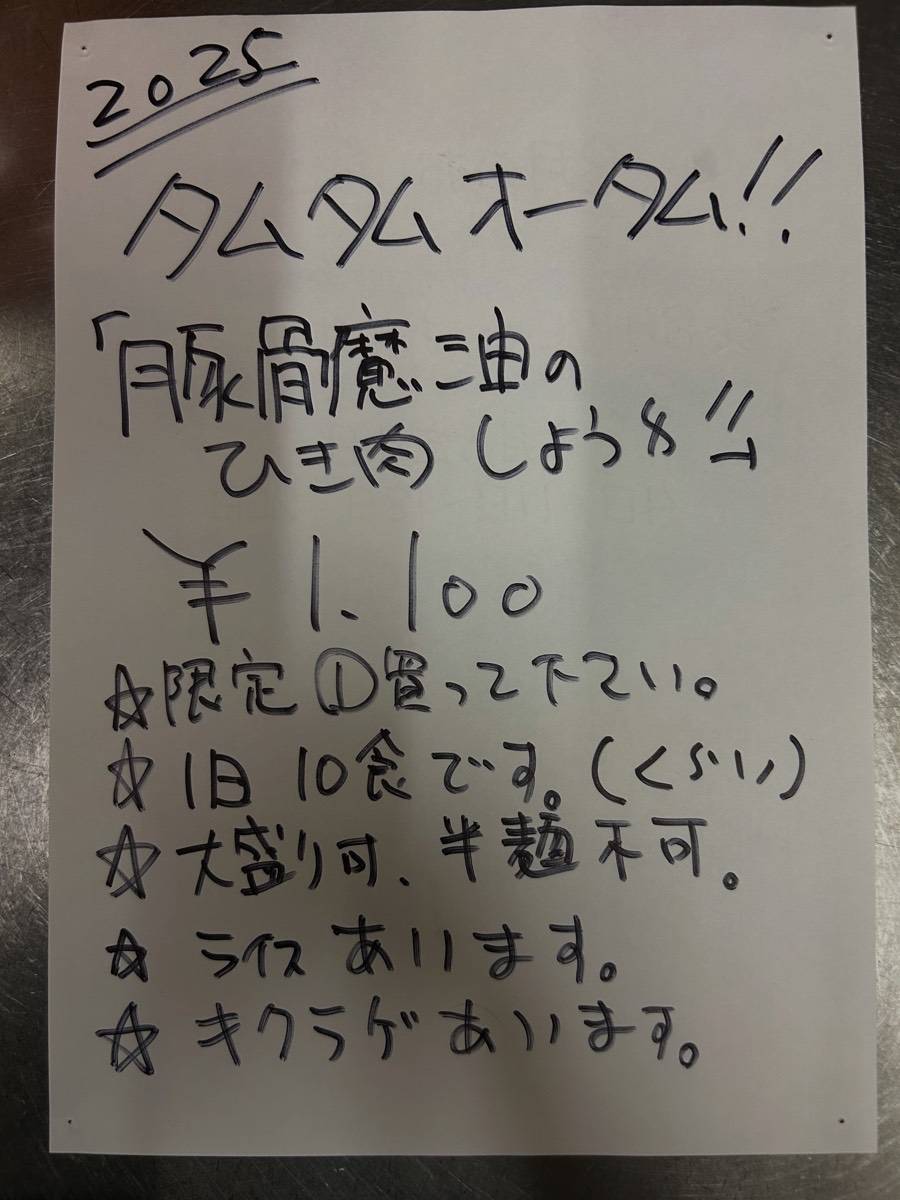 2025
タムタムオータム!!
「豚骨魔油の
ひき肉しょうゆ!!」
¥1.100
☆限定①買って下さい。
☆1日10食です。(くらい)
☆大盛り可、半麺不可。
☆ライスあります。
☆キクラゲあります。